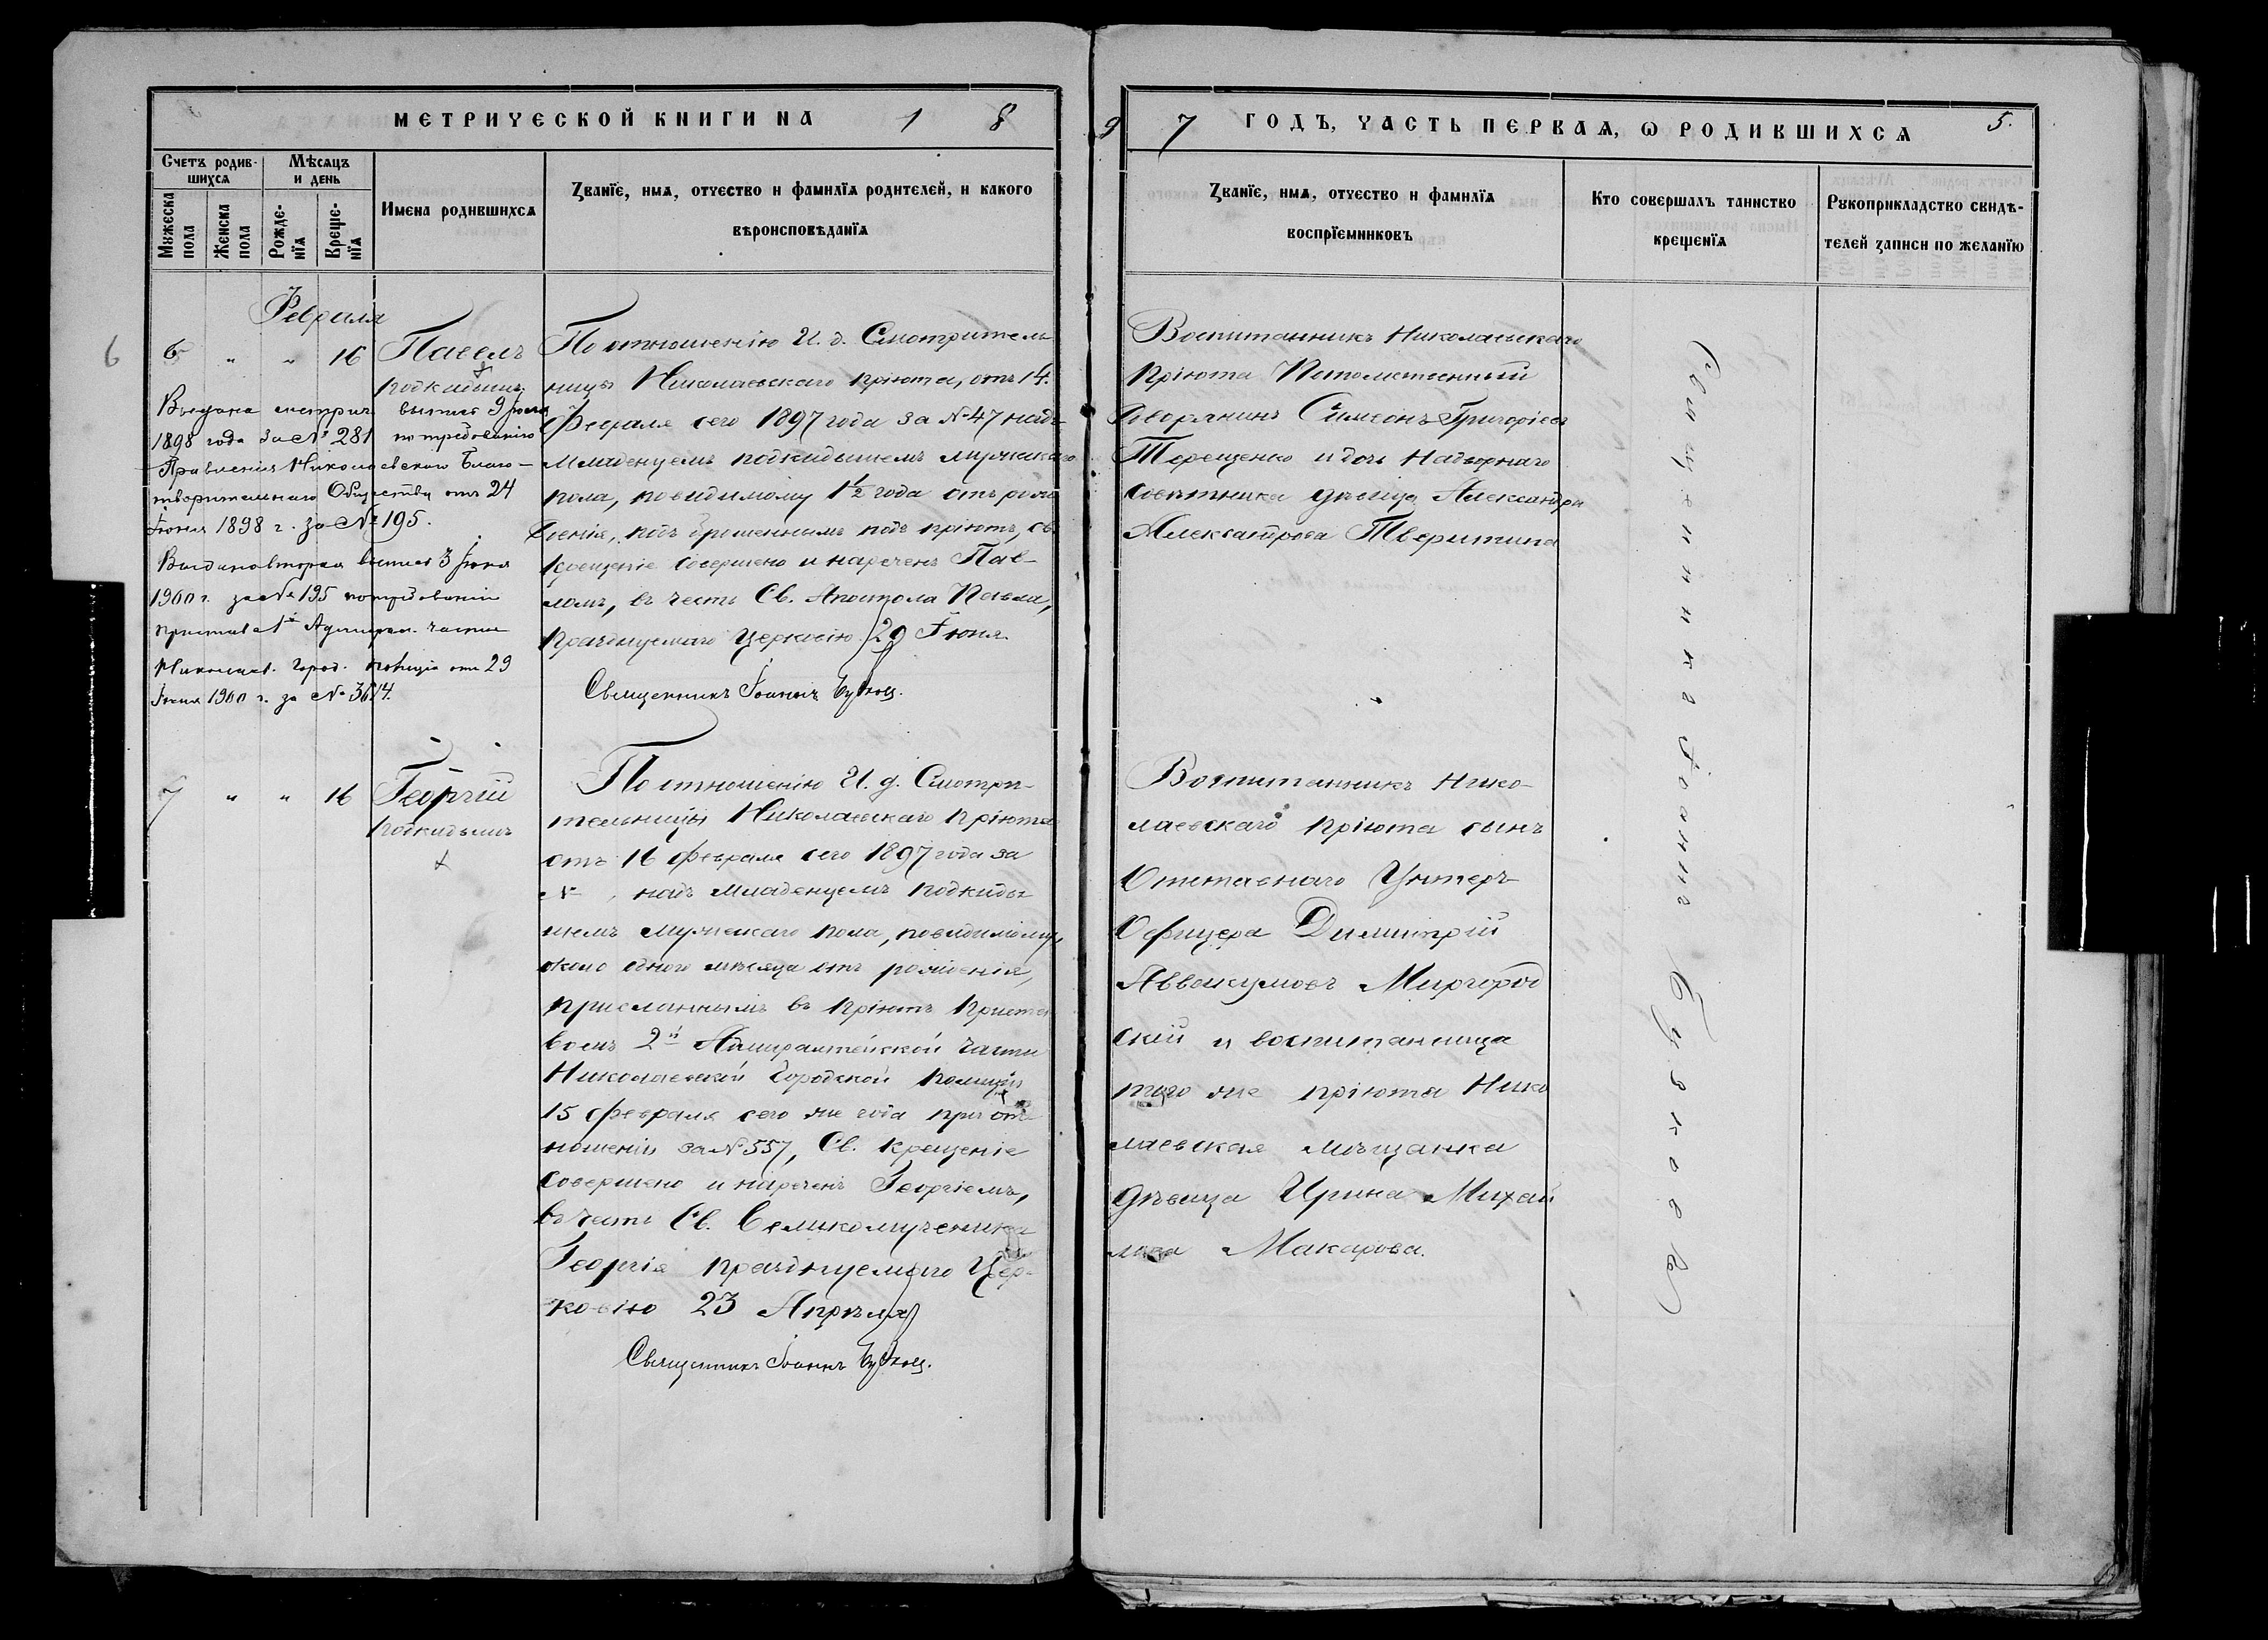 МЕТРИЧЕСКОЙ КНИГИ НА 1 8 9 7 ГОДЪ, ЧАСТЬ ПЕРВАЯ, Ѡ РОДИВШИХСЯ 5.
Счетъ родив-
шихся
Мѣсяцъ
и день
Мужеска пола
Женска пола
Рожде-
нїя
Креще-
нїя
Имена родившихся
Званїе, имя, отчество и фамилїя родителей, и какого
вѣроисповѣданїя
Званїе, имя, отчество и фамилїя
воспрїемниковъ
Кто совершалъ таинство
крещенїя
Рукоприкладство свидѣ-
телей записи по желанїю
Февраля
6
6 " " 16
Павелъ
подкидышъ
Выдана метрич. выпись 9 Іюля
1898 года за № 281 по требованію
Правленія Николаевскаго Благо-
творительнаго Общества отъ 24
Іюня 1898 г. за № 195.
Выдана вторая выпись 3 Іюля
1900 г. за № 195 по требованію
пристава 1й Адмирал. части
Николаев. Город. полиціи отъ 29
Іюня 1900 г. за № 3614.
По отношенію И. д. Смотритель-
ницы Николаевскаго пріюта, отъ 14
Февраля сего 1897 года за № 47 надъ
младенцемъ подкидышемъ мужскаго
пола, повидимому 1½ года отъ рож-
денія, подброшеннымъ подъ пріютъ, Св.
крещеніе совершено и нареченъ Пав-
ломъ, въ честь Св. Апостола Павла,
празднуемаго Церковію 29 Іюня.
Священникъ Іоаннъ
Воспитанникъ Николаевскаго
пріюта Потомственный
дворянинъ Симеонъ Григоріевъ
Терещенко и дочь Надворнаго
совѣтника дѣвица Александра
Александрова Тверитина
7 " " 16
Георгій
подкидышъ
По отношенію И. д. Смотри-
тельницы Николаевскаго пріюта
отъ 16 февраля сего 1897 года за
№ , надъ младенцемъ подкиды-
шемъ мужскаго пола, повидимому,
около одного мѣсяца отъ рожденія,
присланнымъ въ пріютъ Приста-
вомъ 2й Адмиралтейской части
Николаевской Городской полиціи
15 февраля сего же года при от-
ношеніи за № 557, Св. крещеніе
совершено и нареченъ Георгіемъ,
въ честь Св. Великомученика
Георгія празднуемаго Цер-
ковію 23 Апрѣля
Священникъ Іоаннъ
Воспитанникъ Нико-
лаевскаго пріюта сынъ
Отставнаго Унтеръ-
Офицера Димитрій
Аввакумовъ Миргород
скій и воспитанница
того же пріюта Нико
лаевская мѣщанка
дѣвица Ирина Михай
лова Макарова.
Священникъ Іоаннъ